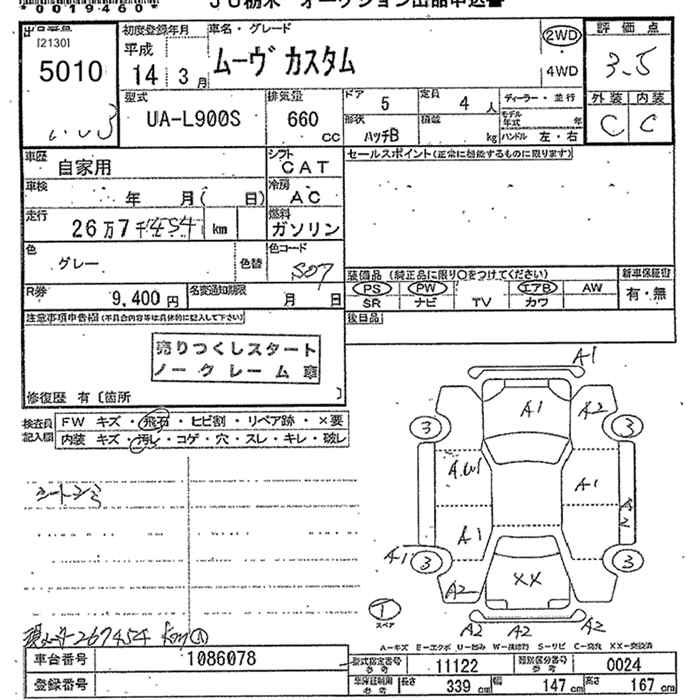 *0019460*
JU栃木 オークション出品申込書
[2130]
5010
初度登録年月
平成
14 3月
車名・グレード
ムーヴカスタム
2WD
4WD
評価点
3.5
外装 内装
C C
型式
UA-L900S
排気量
660
cc
ドア 5
定員 4人
形状
ハッチB
積載
kg
ディーラー・並行
モデル年式 年
ハンドル 左・右
車歴
自家用
シフト
CAT
セールスポイント(正常に機能するものに限ります)
車検
年 月( 日)
冷房
AC
走行
26万7千454 km
燃料
ガソリン
色
グレー
色替
色コード
S07
R券
9,400円
名変通知期限
月 日
装備品 (純正品に限り○をつけてください)
PS PW エアB AW
SR ナビ TV カワ
新車保証書
有・無
後日品
注意事項申告欄(不具合内容等は具体的に記入して下さい)
売りつくしスタート
ノークレーム車
修復歴 有〔箇所 〕
検査員記入欄
FW キズ・飛石・ヒビ割・リペア跡・×要
内装 キズ・汚レ・コゲ・穴・スレ・キレ・破レ
A1
A1
A2
3
3
A1
A2
A1
A1
3
3
A2
XX
1
スペア
A2
A2
A2
267454 km
A-キズ E-エクボ U-凹み W-補修跡 S-サビ C-腐食 XX-交換済
車台番号
1086078
登録番号
型式指定番号
参考
11122
類別区分番号
参考
0024
車庫証明用
参考
長さ 339cm
幅 147cm
高さ 167cm